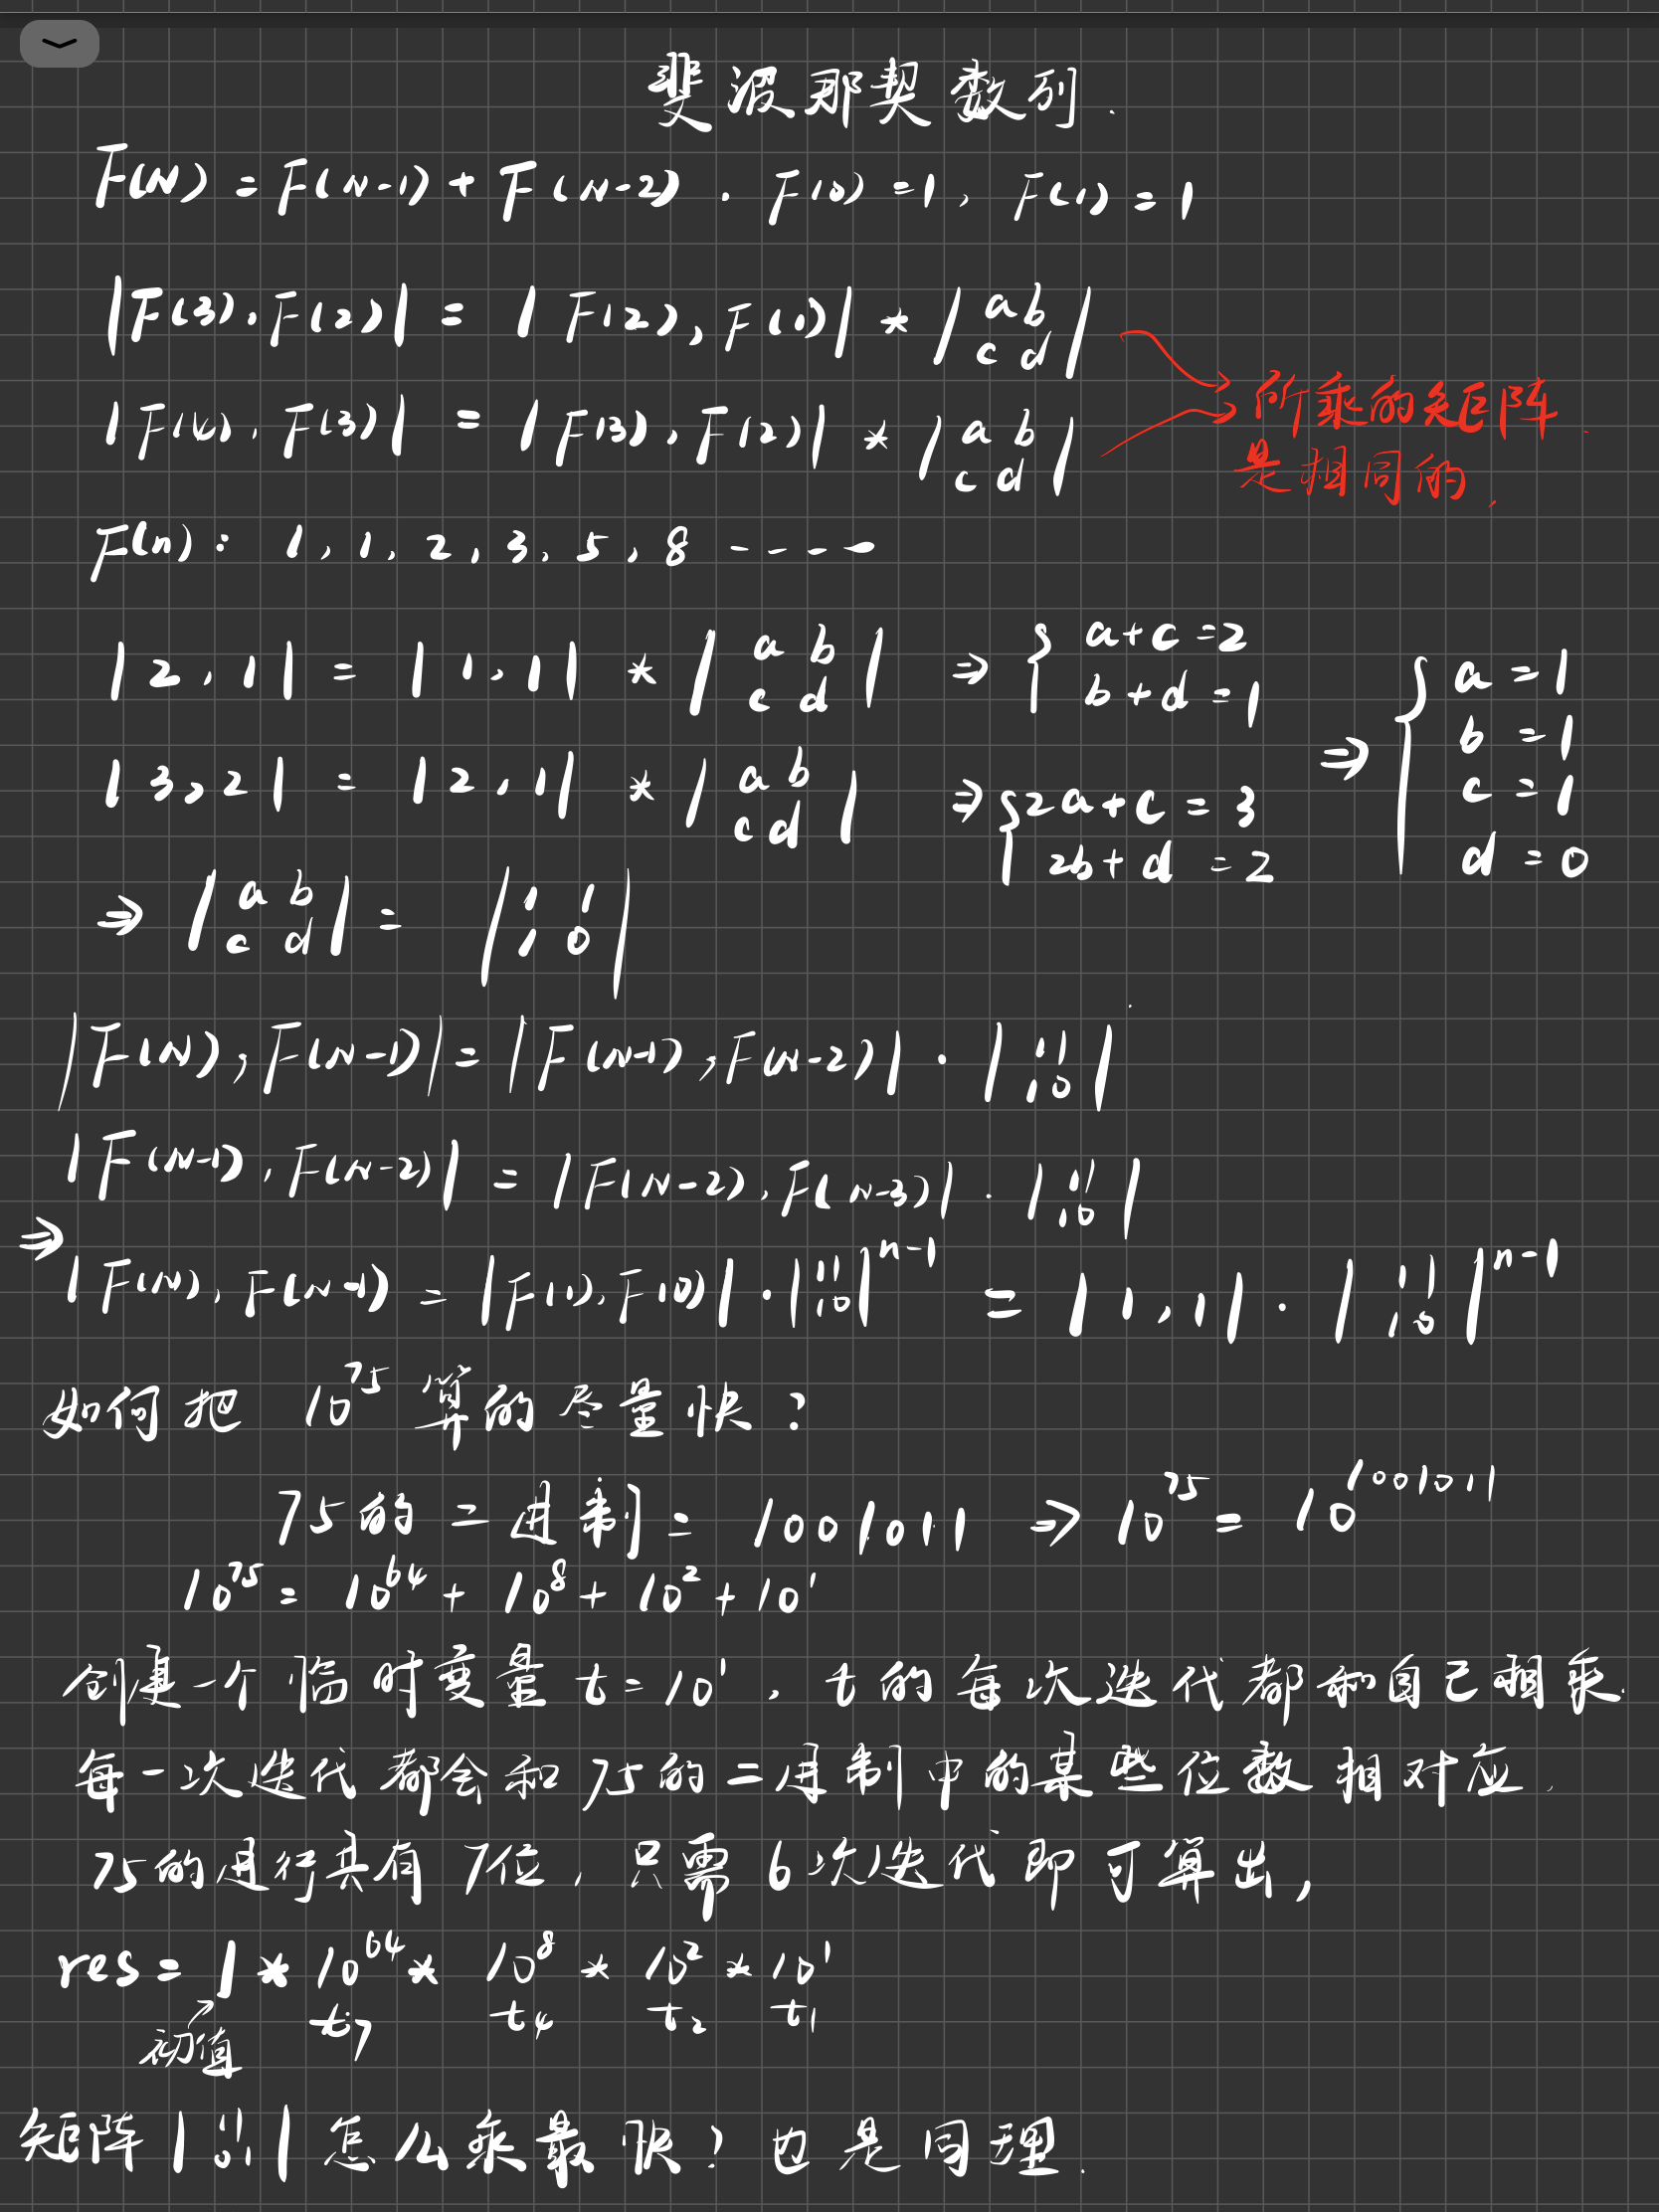 斐波那契数列.
F(N) = F(N-1) + F(N-2) . F(0) = 1, F(1) = 1
|F(3), F(2)| = |F(2), F(1)| * |a b
c d|
|F(4), F(3)| = |F(3), F(2)| * |a b
c d|
所乘的矩阵
是相同的.
F(n): 1, 1, 2, 3, 5, 8 ----
|2, 1| = |1, 1| * |a b
c d| ⇒ { a+c=2
b+d=1
|3, 2| = |2, 1| * |a b
c d| ⇒ { 2a+c=3
2b+d=2
⇒ { a=1
b=1
c=1
d=0
⇒ |a b
c d| = |1 1
1 0|
|F(N), F(N-1)| = |F(N-1), F(N-2)| · |1 1
1 0|
|F(N-1), F(N-2)| = |F(N-2), F(N-3)| · |1 1
1 0|
⇒ |F(N), F(N-1)| = |F(1), F(0)| · |1 1
1 0|^n-1 = |1, 1| · |1 1
1 0|^n-1
如何把 10^75 算的尽量快?
75的二进制 = 1001011 ⇒ 10^75 = 10^1001011
10^75 = 10^64 + 10^8 + 10^2 + 10^1
创建一个临时变量 t=10^1, t的每次迭代都和自己相乘.
每一次迭代都会和75的二进制中的某些位数相对应.
75的进行共有7位, 只需6次迭代即可算出,
res = 1 * 10^64 * 10^8 * 10^2 * 10^1
初值 t7 t4 t2 t1
矩阵 |1 1
0 1| 怎么乘最快? 也是同理.